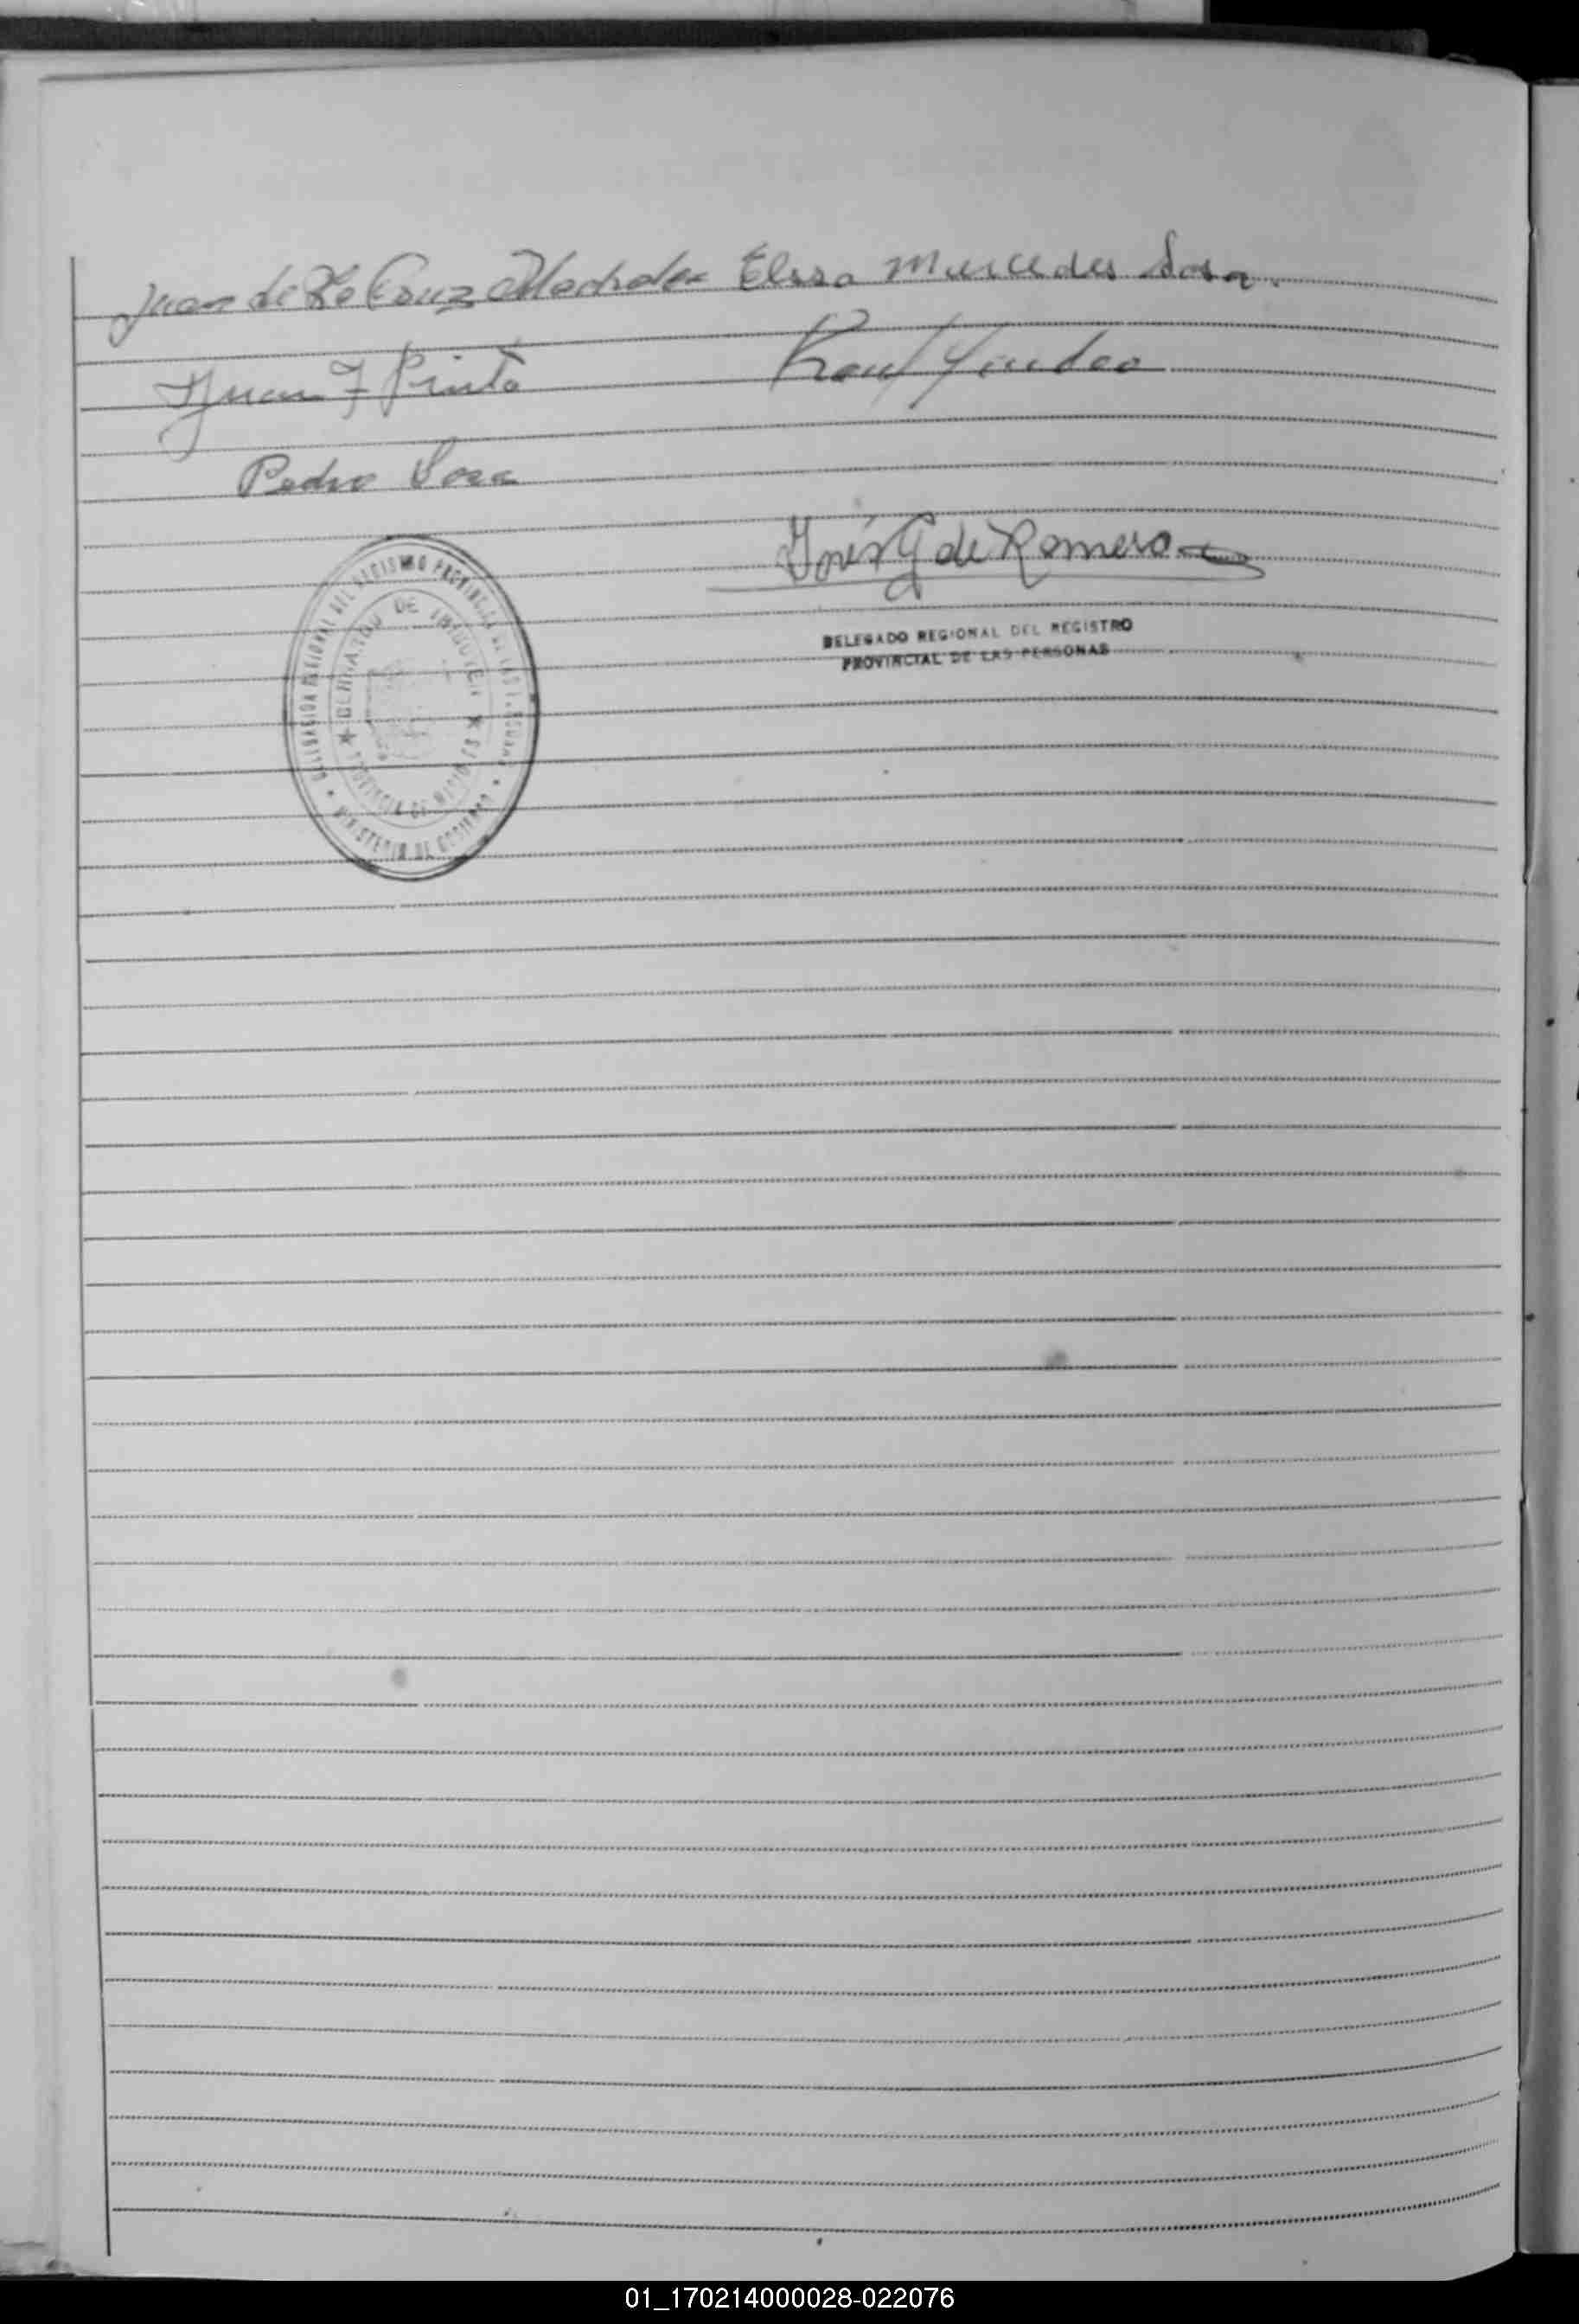 Juan de La Cruz Machado Elisa Mercedes Sosa.
Juan F Pinto Raul
Pedro Sosa
Inés G de Romero
DELEGADO REGIONAL DEL REGISTRO
PROVINCIAL DE LAS PERSONAS
DELEGACION REGIONAL DEL REGISTRO PROVINCIAL DE LAS PERSONAS
MINISTERIO DE GOBIERNO
DE
PROVINCIA DE MISIONES
01_170214000028-022076